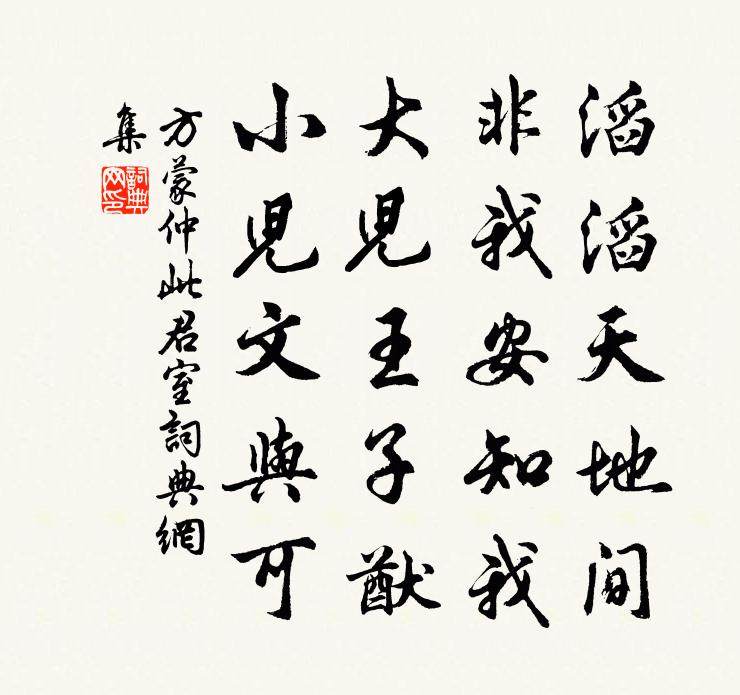 滔滔天地间
非我安知我
大児王子猷
小児文與可
方蒙仲此君室詞典網
集
詞典网印